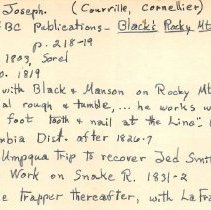 Joseph. (Courville, Cornellier)
BC Publications - Black's Rocky Mt
p. 218-19
1803, Sorel
o. 1819
with Black & Manson on Rocky Mt
al rough & tumble, ... he works w
foot tooth & nail at the Line"
mbia Dist. after 1826-7
Umpqua trip to recover Jed Smit
Work on Snake R. 1831-2
e trapper thereafter, with LaFra